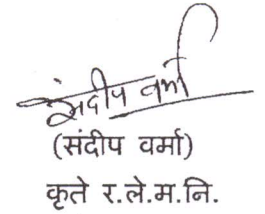 संदीप वर्मा
(संदीप वर्मा)
कृते र.ले.म.नि.